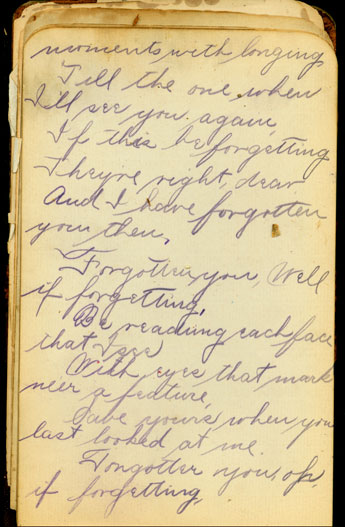 moments with longing
Till the one when
I'll see you again,
If this be forgetting
They're right, dear
And I have forgotten
you then,
Forgotten you, Well
if forgetting,
Be reading each face
that I see
With eyes that mark
neer a feature,
Save yours when you
last looked at me.
Forgotten you, oh,
if forgetting,